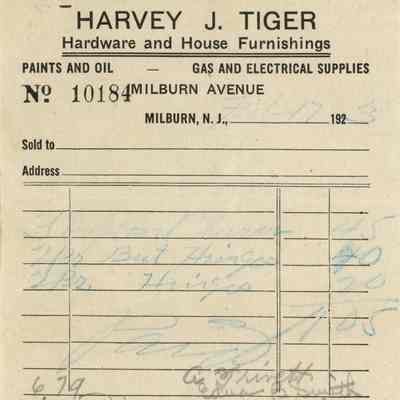 HARVEY J. TIGER
Hardware and House Furnishings
PAINTS AND OIL — GAS AND ELECTRICAL SUPPLIES
No 10184 MILBURN AVENUE
MILBURN, N. J., 17 192
Sold to
Address
45
1 pr But Hinges 40
2 Pr. Hinges 20
1 05
6 79